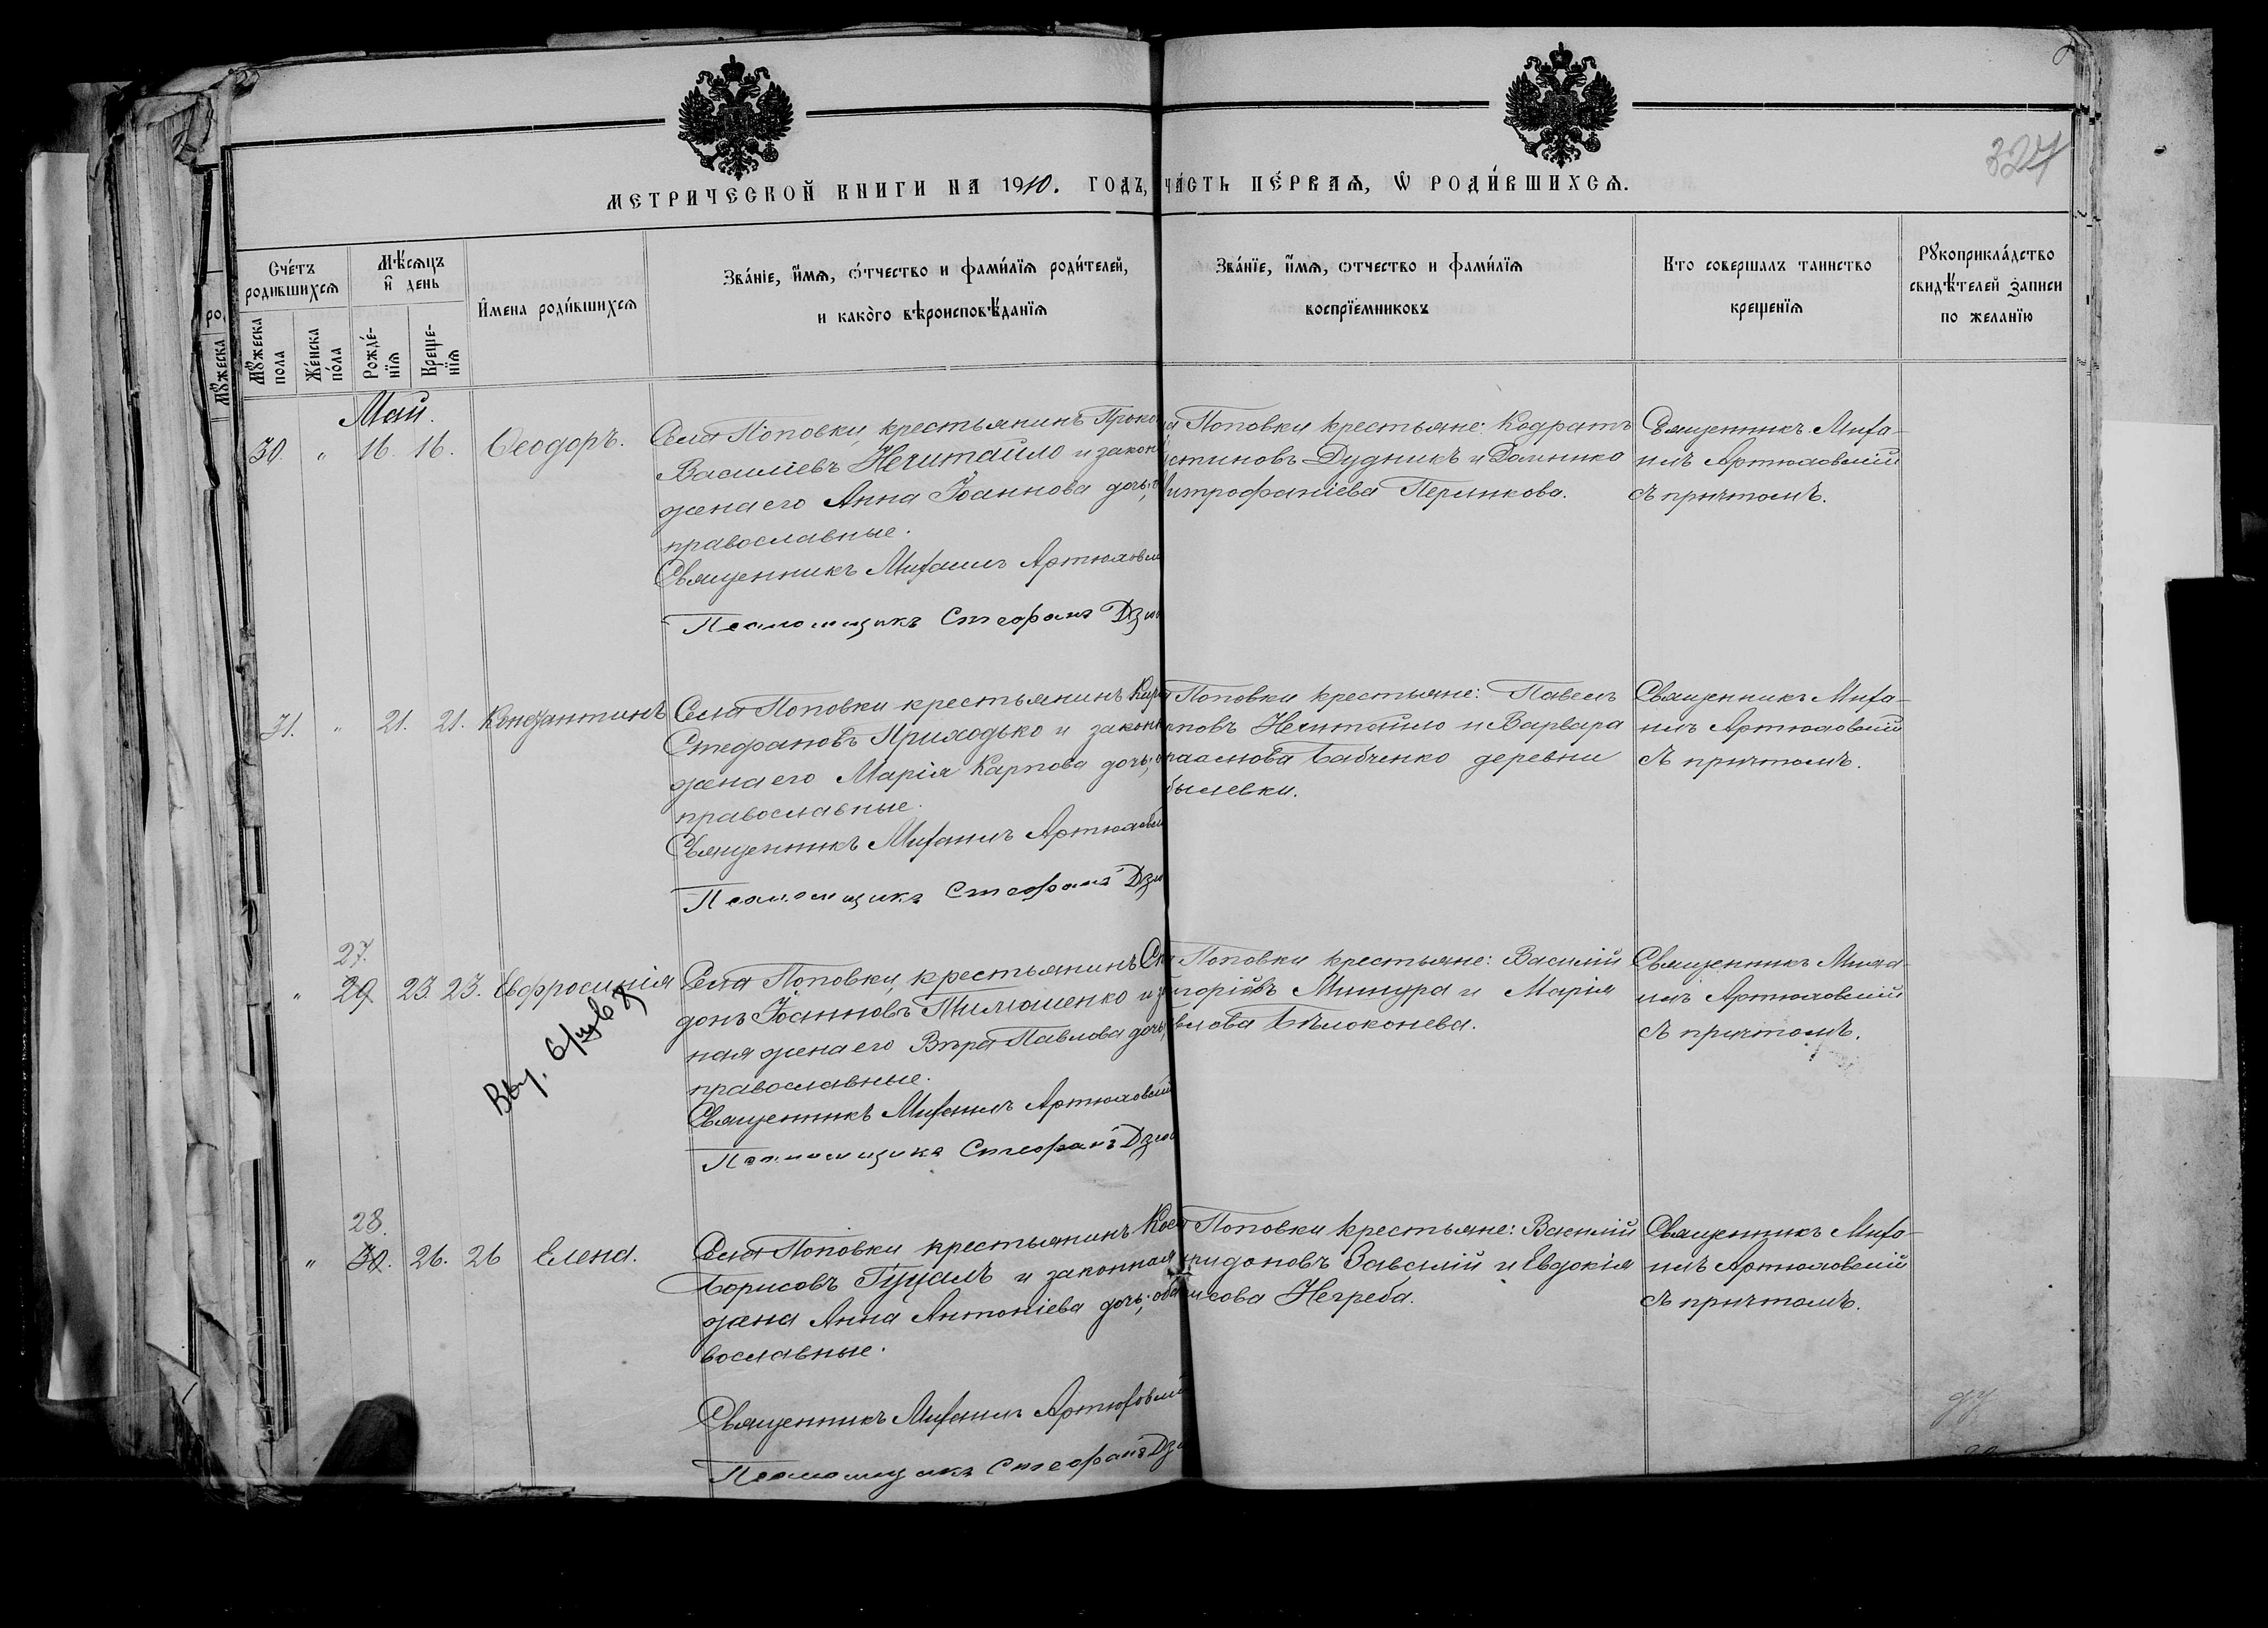 327
МЕТРИЧЕСКОЙ КНИГИ НА 1910. ГОДЪ, ЧА́СТЬ ПЕ́РВАѦ, Ѡ РОДИ́ВШИХСѦ.
Сче́тъ родившихсѧ
Мꙋжеска пола
Же́нска по́ла
Мѣ́сяцъ и҆ день
Рожде́-нїѧ
Креще-нїѧ
И҆мена роди́вшихсѧ
Зва́нїе, и҆́мѧ, ѻ҆́тчество и фами́лїѧ роди́телей,
и како̀го вѣроисповѣ́данїѧ
Зва́нїе, и҆́мѧ, ѻтчество и фами́лїѧ
воспрїемниковъ
Кто совершалъ таинство
крещенїѧ
Рꙋкоприкла́дство
свидѣ́телей записи
по желанїю
Май.
30. " 16. 16. Ѳеодоръ.
Села Поповки, крестьянинъ Проко
Василіевъ Нечитайло и закон
жена его Анна Іоаннова дочь;
православные.
Священникъ Михаилъ Артюховс
Псаломщикъ Стефанъ Дзю
Поповки крестьяне: Кодратъ
стиновъ Дудникъ и Домника
итрофаніева Перликова.
Священникъ Миха-
илъ Артюховскій
съ причтомъ.
31. " 21. 21. Константинъ
Села Поповки крестьянинъ Кир
Стефановъ Приходько и закон
жена его Марія Карпова дочь;
православные.
Священникъ Михаилъ Артюховс
Псаломщикъ Стефанъ Дзю
Поповки крестьяне: Павелъ
повъ Нечитайло и Варвара
Бабченко деревни
былевки.
Священникъ Миха-
илъ Артюховскій
съ причтомъ.
27.
" 29. 23. 23. Евфросинія
Села Поповки, крестьянинъ Сп
донъ Іоанновъ Тимошенко и з
ная жена его Вѣра Павлова дочь;
православные.
Священникъ Михаилъ Артюховскій
Псаломщикъ Стефанъ Дзю
Поповки крестьяне: Василій
игоріевъ Мишура и Марія
влова Бѣлоконева.
Священникъ Миха-
илъ Артюховскій
съ причтомъ.
28.
" 30. 26. 26 Елена.
Села Поповки крестьянинъ Кос
Борисовъ Гуцалъ и законная
жена Анна Антоніева дочь; оба
вославные.
Священникъ Михаилъ Артюховскій
Псаломщикъ Стефанъ Дзю
Поповки крестьяне: Василій
ридоновъ и Евдокія
исова Негреба.
Священникъ Миха-
илъ Артюховскій
съ причтомъ.